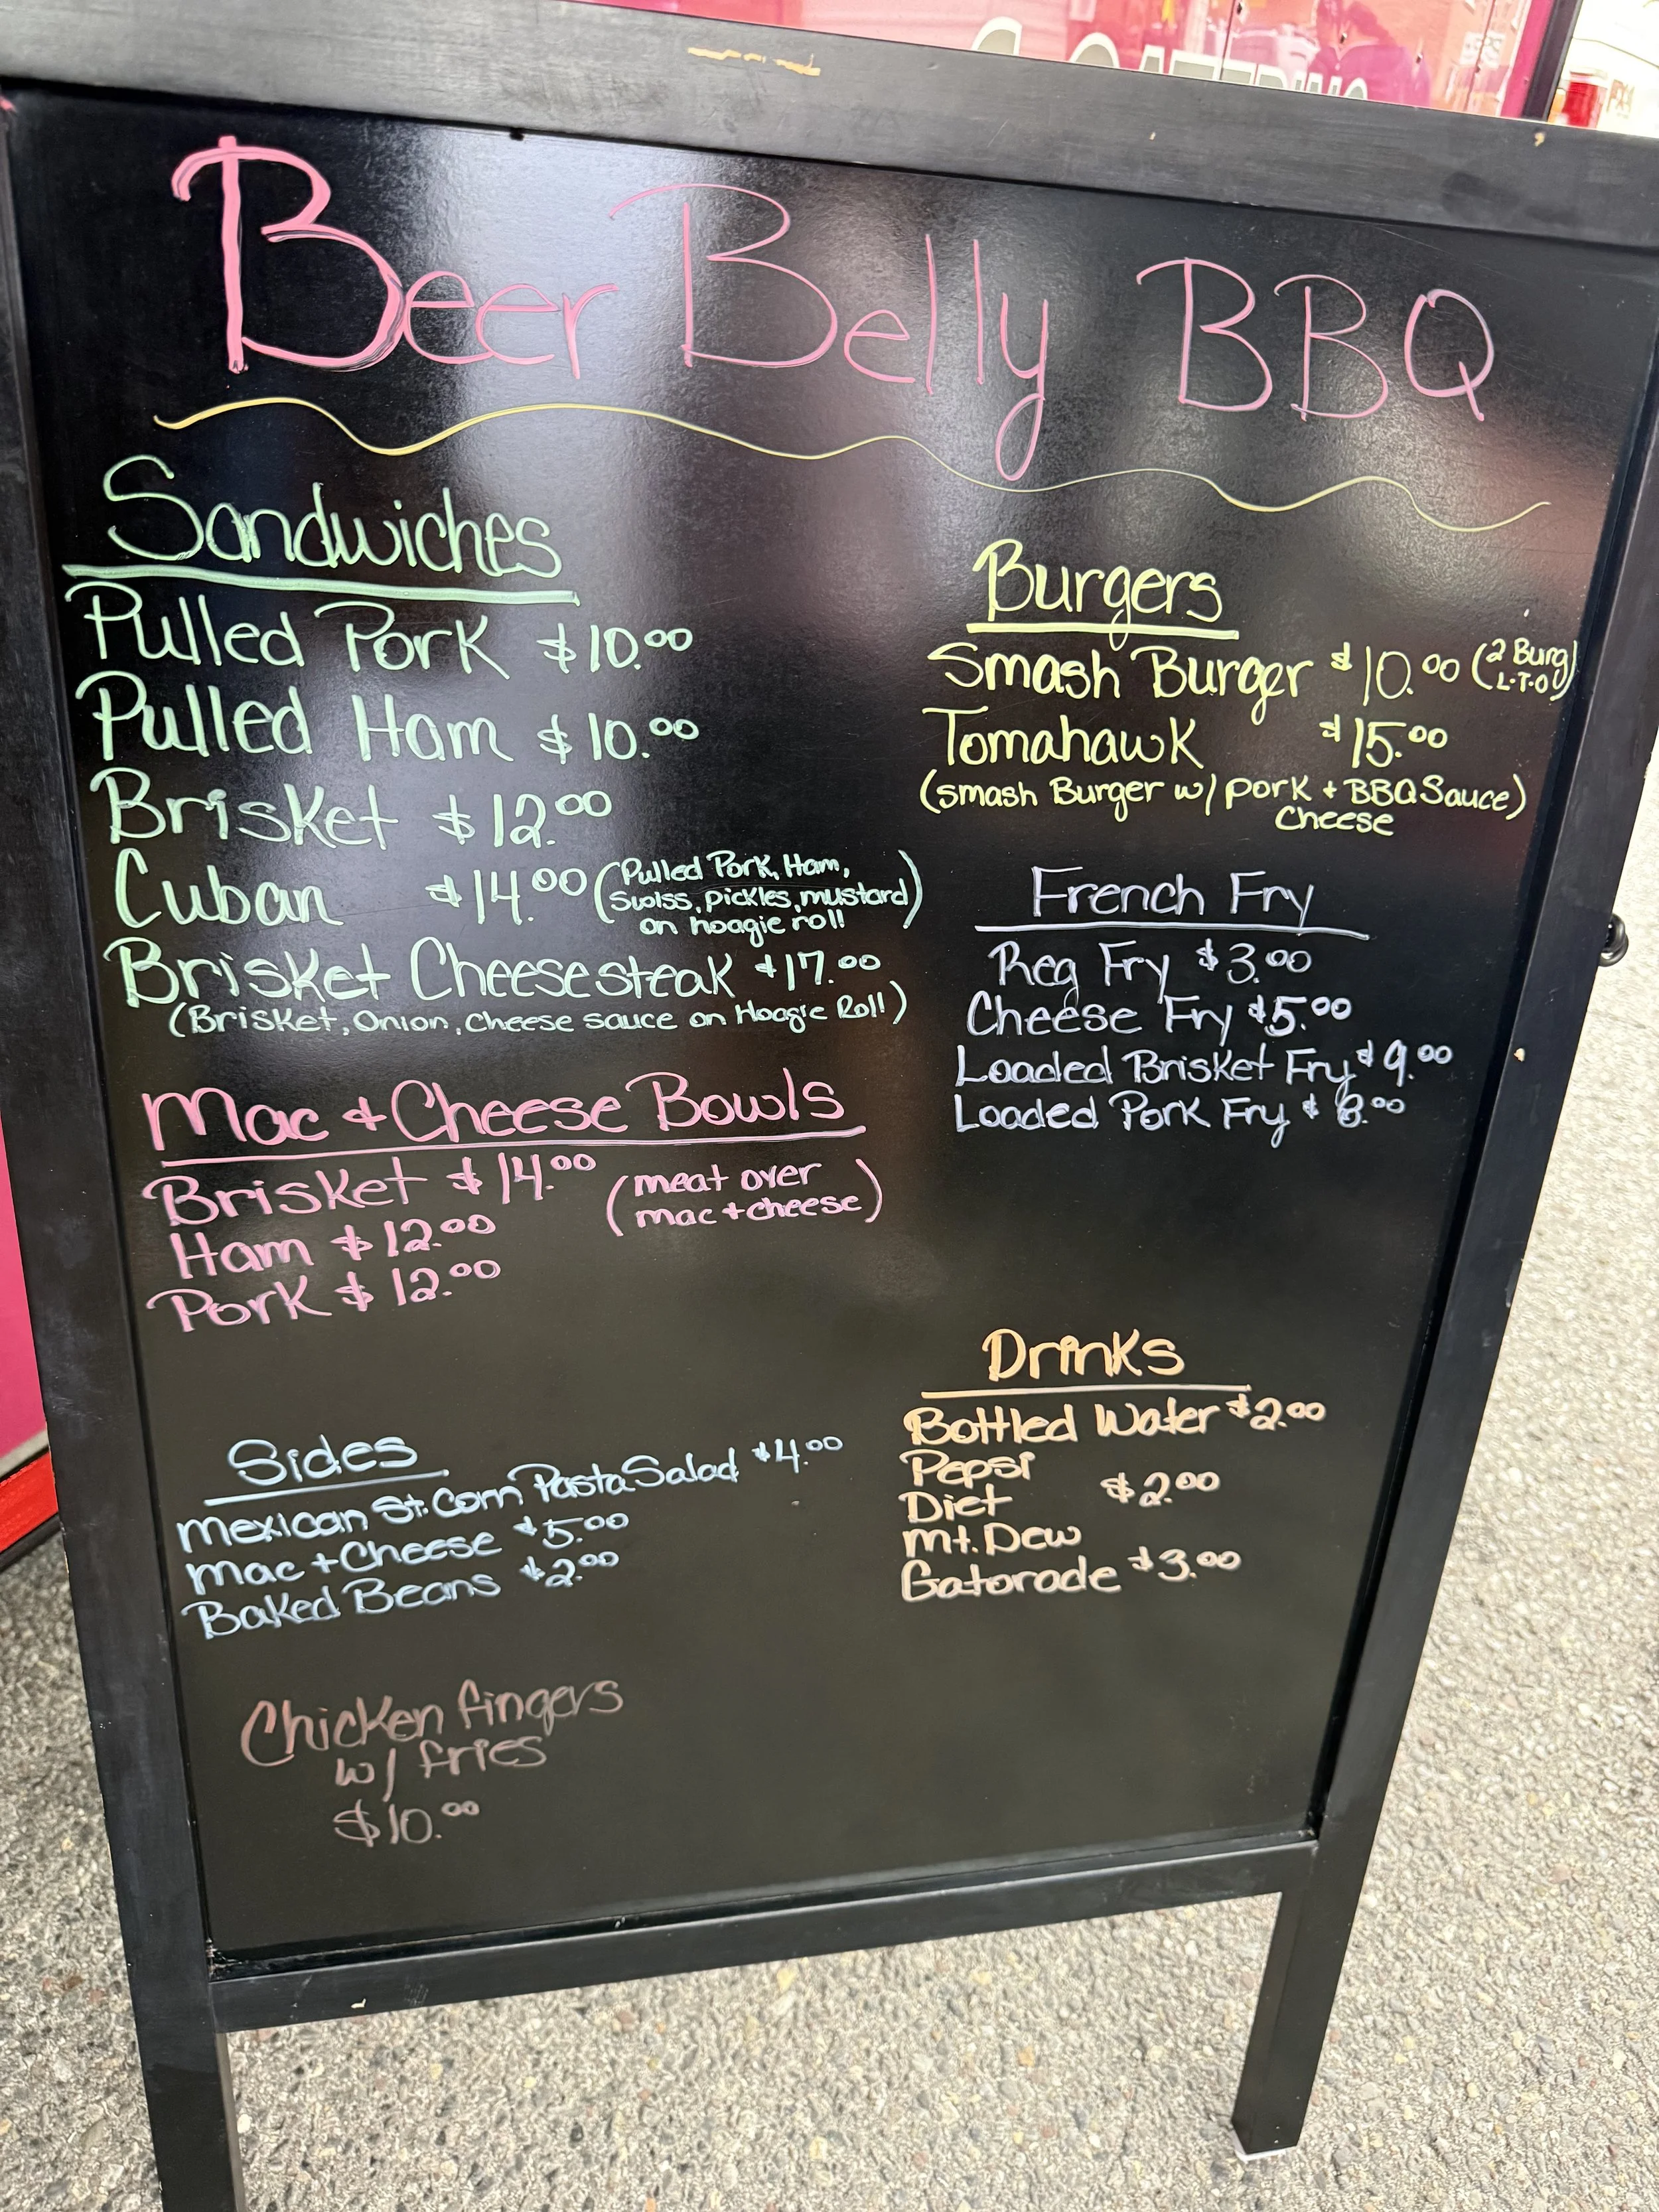 CATERING
Beer Belly BBQ
Sandwiches
Pulled Pork $10.00
Pulled Ham $10.00
Brisket $12.00
Cuban $14.00 (Pulled Pork, Ham,
Swiss, pickles, mustard)
on hoagie roll
Brisket Cheesesteak $17.00
(Brisket, Onion, Cheese sauce on Hoagie Roll)
Mac & Cheese Bowls
Brisket $14.00 (meat over
mac + cheese)
Ham $12.00
Pork $12.00
Sides
Mexican St. Corn Pasta Salad $4.00
Mac + Cheese $5.00
Baked Beans $2.00
Chicken fingers
w/ fries
$10.00
Burgers
Smash Burger $10.00 (2 Burg)
L-T-O
Tomahawk $15.00
(smash Burger w/ pork + BBQ Sauce)
Cheese
French Fry
Reg Fry $3.00
Cheese Fry $5.00
Loaded Brisket Fry $9.00
Loaded Pork Fry $8.00
Drinks
Bottled Water $2.00
Pepsi
Diet $2.00
Mt. Dew
Gatorade $3.00